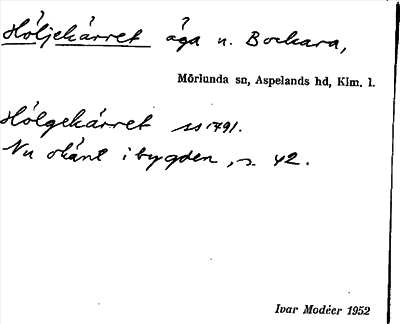 Höljekärret äga n. Bockara,
Mörlunda sn, Aspelands hd, Klm. l.
Hölgekärret 1791.
Nu okänt i bygden, s. 42.
Ivar Modéer 1952